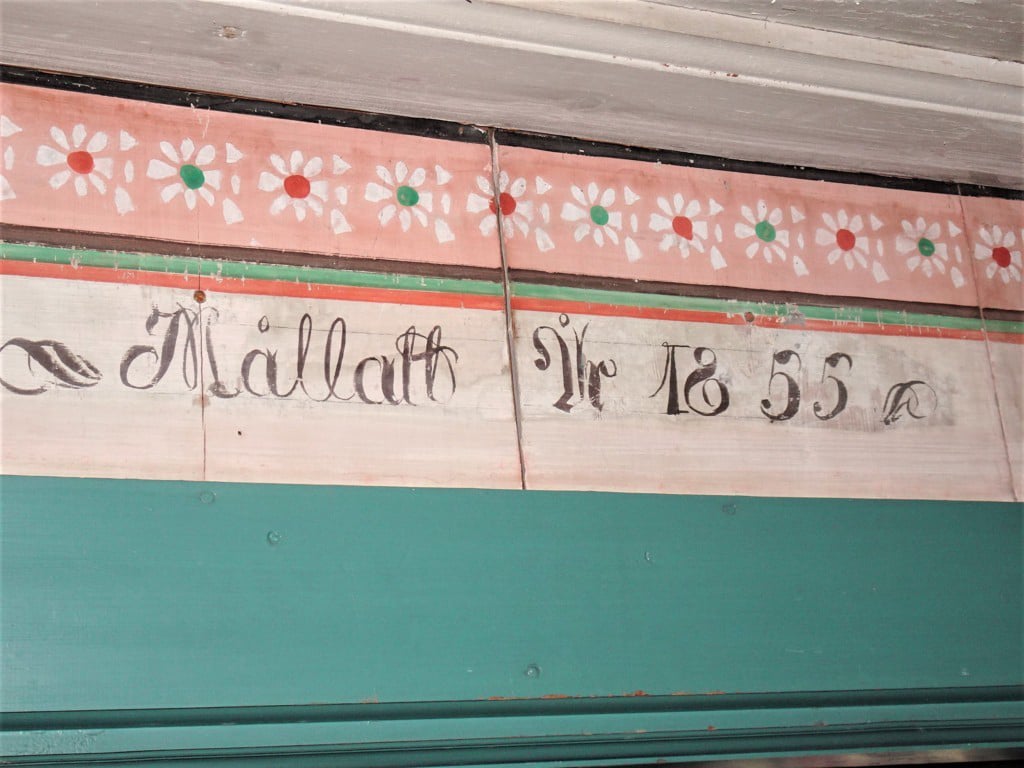 Målatt År 1855